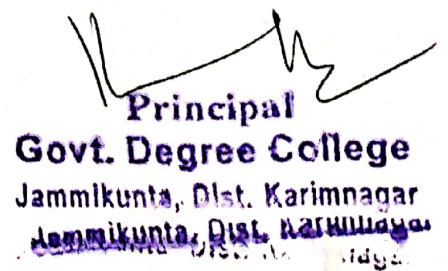 Principal
Govt. Degree College
Jammikunta, Dist. Karimnagar
Jammikunta, Dist. Karimnagar